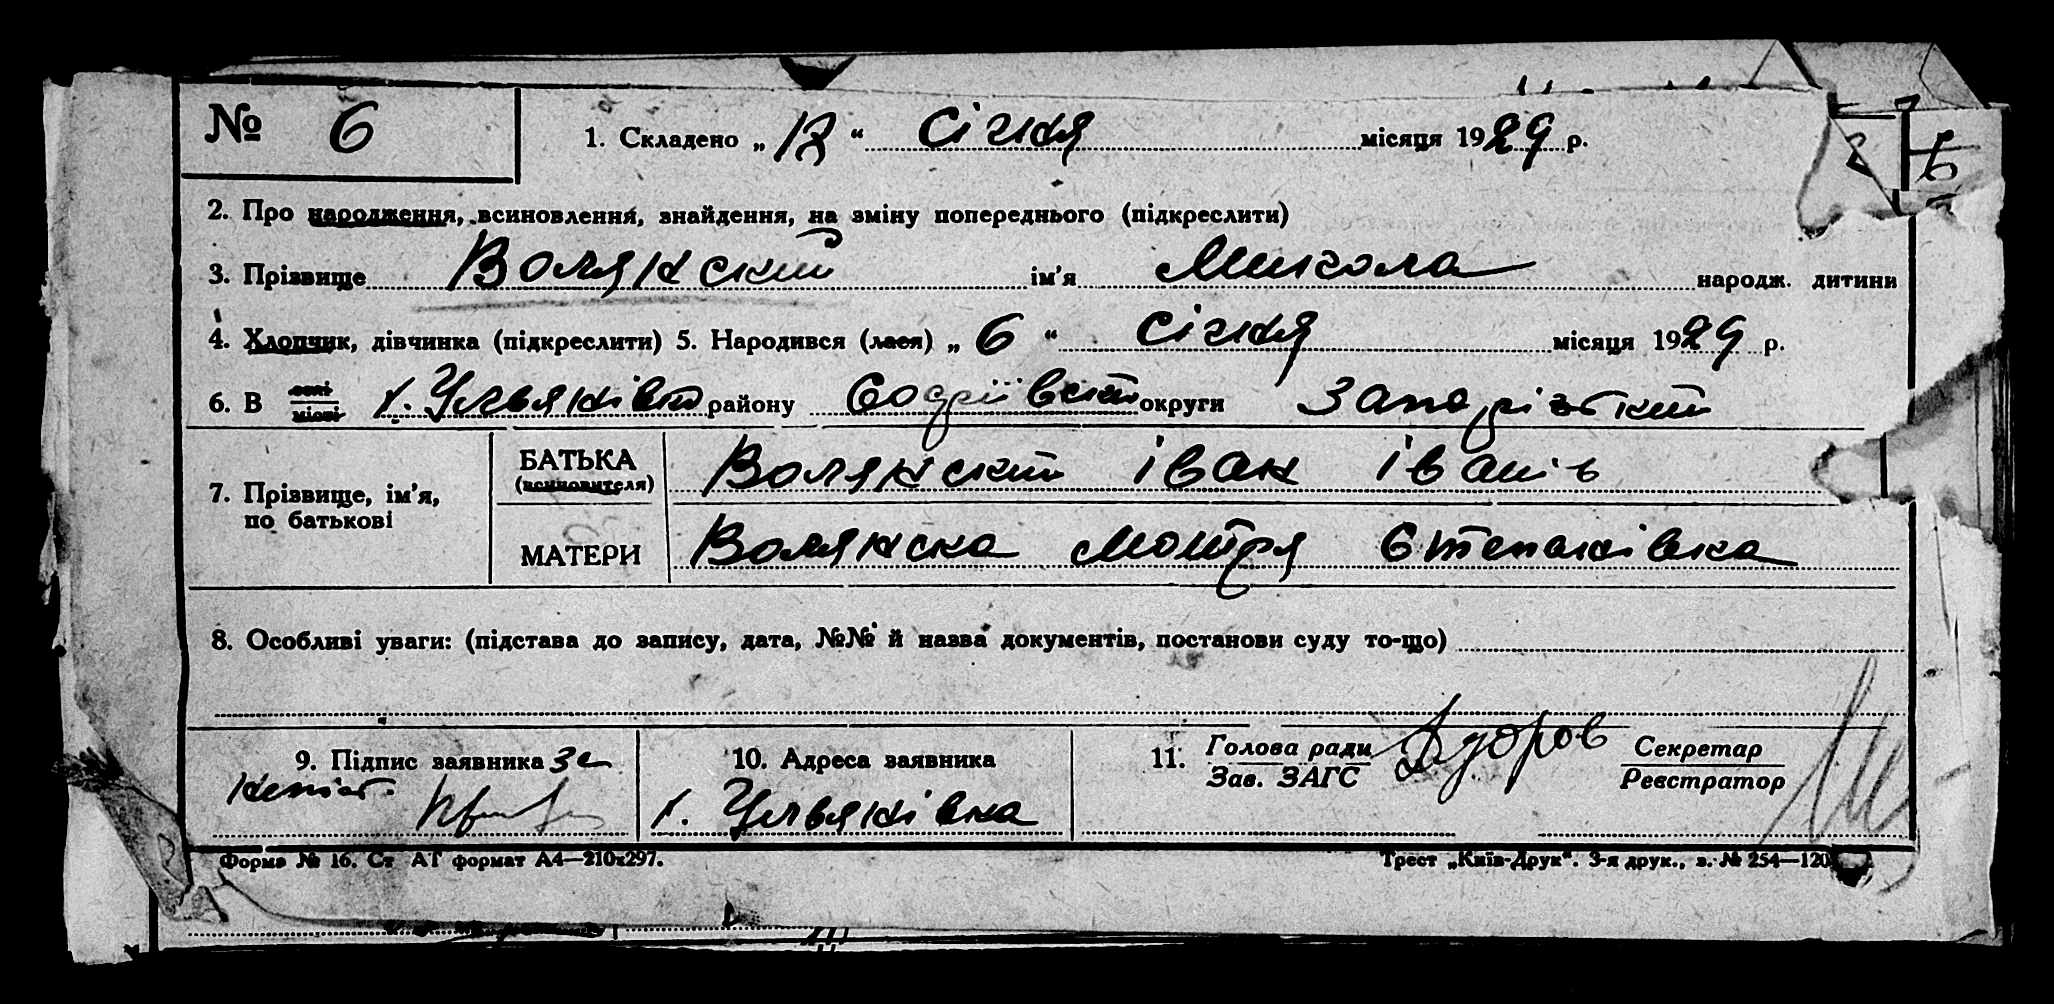 № 6
1. Складено „ 12 “ Січня місяця 1929 р.
2. Про народження, всиновлення, знайдення, на зміну попереднього (підкреслити)
3. Прізвище Волянский ім'я Микола народж. дитини
4. Хлопчик, дівчинка (підкреслити) 5. Народився (лася) „ 6 “ Січня місяця 1929 р.
6. В селі місті х. Ульянівка району округи
7. Прізвище, ім'я, по батькові
БАТЬКА (всиновителя) Волянский Іван Іванів
МАТЕРИ Волянска Мотря Степанівна
8. Особливі уваги: (підстава до запису, дата, №№ й назва документів, постанови суду то-що)
9. Підпис заявника за
10. Адреса заявника
х. Ульянівка
11. Голова ради Зав. ЗАГС Секретар Реєстратор
Форма № 16. Ст АТ формат А4—210х297.
Трест „Київ-Друк“. 3-я друк., з. № 254—120